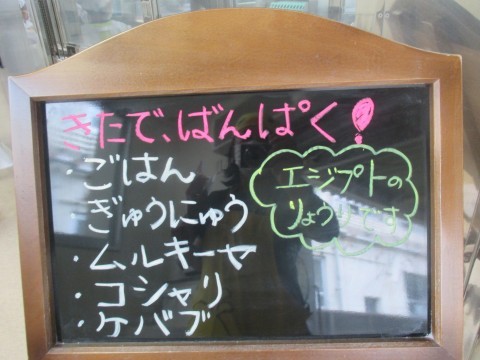 きたで、ばんぱく!
・ごはん
・ぎゅうにゅう
・ムルキーヤ
・コシャリ
・ケバブ
エジプトの
りょうりです